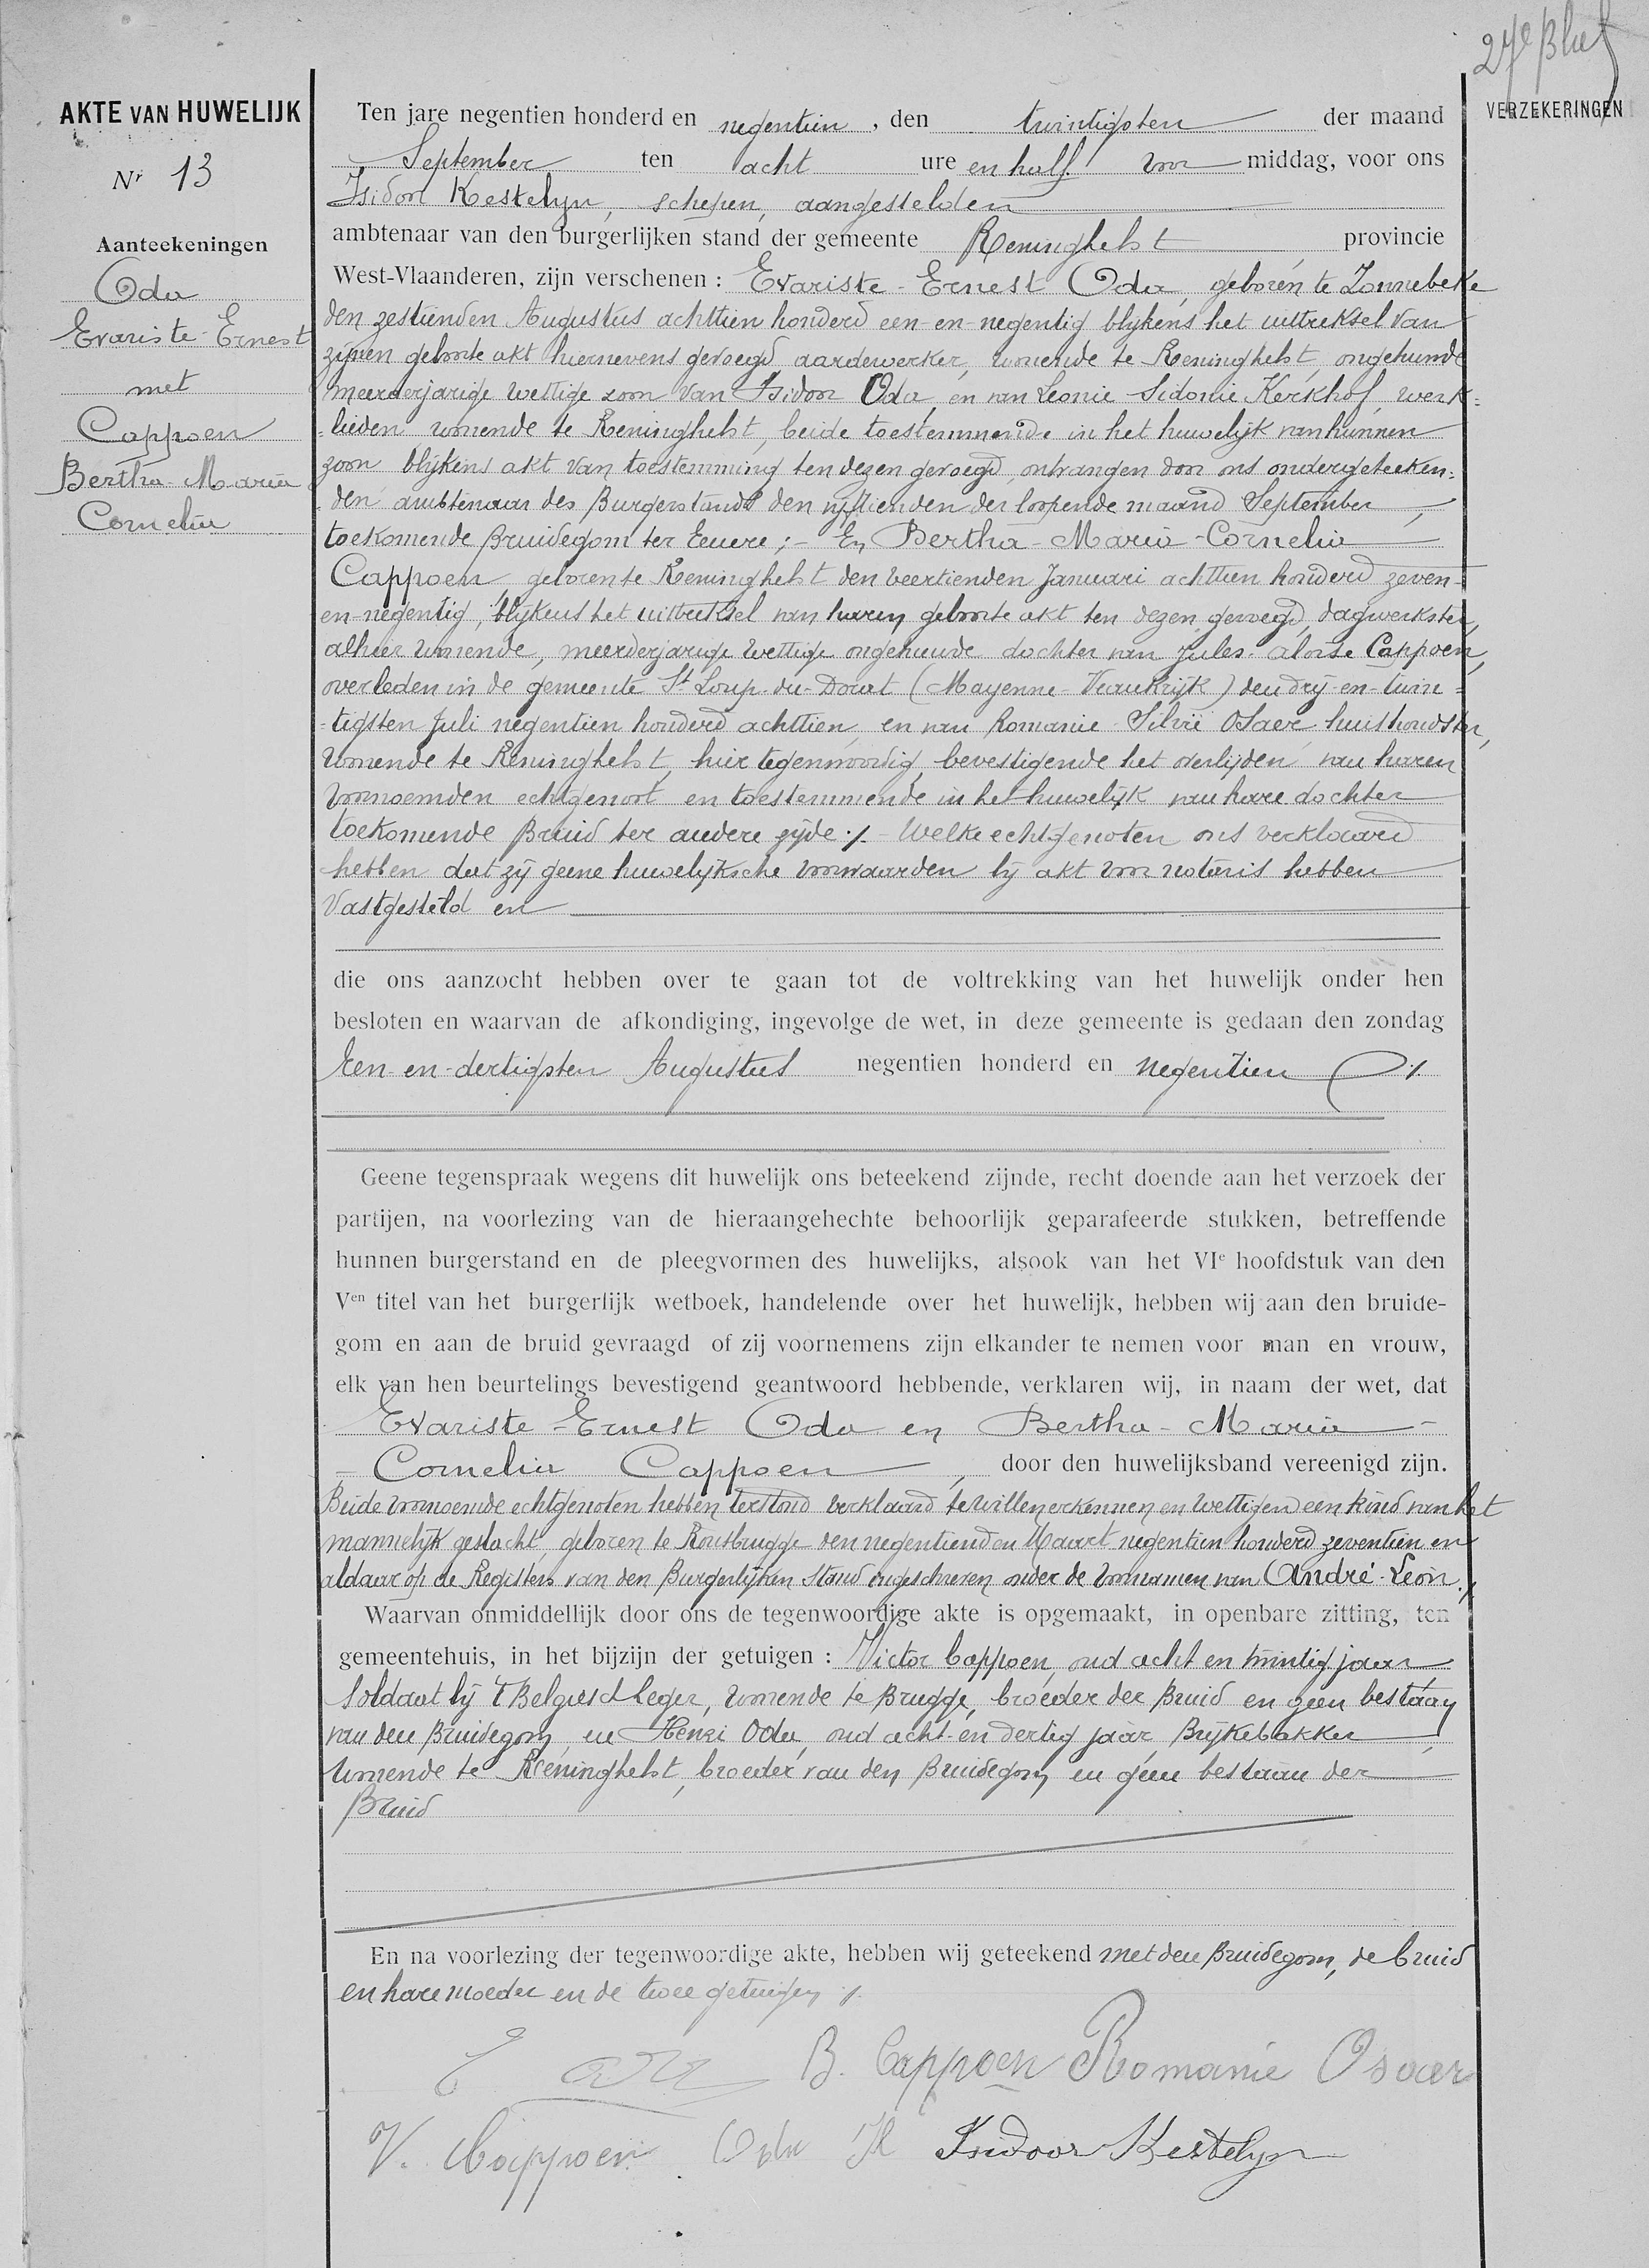 27e Blad
AKTE VAN HUWELIJK
Nr 13
Aanteekeningen
Oda
Evariste-Ernest
met
Cappoen
Bertha-Maria
Cornelia
VERZEKERINGEN
Ten jare negentien honderd en negentien, den twintigsten der maand
September ten acht ure en half voor middag, voor ons
Isidor Kestelyn, schepen, aangestelden
ambtenaar van den burgerlijken stand der gemeente Reninghelst provincie
West-Vlaanderen, zijn verschenen : Evariste-Ernest Oda, geboren te Zonnebeke
den zestienden Augustus achttien honderd een-en-negentig blijkens het uittreksel van
zijnen geboorte akt hiernevens gevoegd, aardewerker, wonende te Reninghelst, ongehuwde
meerderjarige wettige zoon van Isidoor Oda, en van Leonie Sidonie Kerkhof, werk-
-lieden wonende te Reninghelst, beide toestemmende in het huwelijk van hunnen
zoon blijkens akt van toestemming ten dezen gevoegd, ontvangen door ons ondergeteeken-
den ambtenaar des Burgerstands den vijftienden der loopende maand September,
toekomende Bruidegom ter Eenere ;- En Bertha-Maria-Cornelia
Cappoen, geboren te Reninghelst den veertienden Januari achttien honderd zeven-
en-negentig, blijkens het uittreksel van haren geboorte akt ten dezen gevoegd, dagwerkster,
alhier wonende, meerderjarige wettige ongehuwde dochter van Jules-Aloïse Cappoen,
overleden in de gemeente St Loup-du-Dorat (Mayenne-Vrankrijk) den drij-en-twin-
-tigsten Juli negentien honderd achttien, en van Romanie Silvie Osaer huishoudster,
wonende te Reninghelst, hier tegenwoordig, bevestigende het overlijden van haren
voornoemden echtgenoot en toestemmende in het huwelijk van hare dochter
toekomende Bruid ter andere zijde ./. Welke echtgenoten ons verklaard
hebben dat zij geene huwelijksche voorwaarden bij akt voor notaris hebben
vastgesteld en
die ons aanzocht hebben over te gaan tot de voltrekking van het huwelijk onder hen
besloten en waarvan de afkondiging, ingevolge de wet, in deze gemeente is gedaan den zondag
Een-en-dertigsten Augustus negentien honderd en negentien ./.
Geene tegenspraak wegens dit huwelijk ons beteekend zijnde, recht doende aan het verzoek der
partijen, na voorlezing van de hieraangehechte behoorlijk geparafeerde stukken, betreffende
hunnen burgerstand en de pleegvormen des huwelijks, alsook van het VIe hoofdstuk van den
Ven titel van het burgerlijk wetboek, handelende over het huwelijk, hebben wij aan den bruide-
gom en aan de bruid gevraagd of zij voornemens zijn elkander te nemen voor man en vrouw,
elk van hen beurtelings bevestigend geantwoord hebbende, verklaren wij, in naam der wet, dat
Evariste-Ernest Oda en Bertha-Maria-
-Cornelia Cappoen, door den huwelijksband vereenigd zijn.
Beide voornoemde echtgenoten hebben terstond verklaard te willen erkennen en wettigen een kind van het
mannelijk geslacht, geboren te Rousbrugge den negentienden Maart negentien honderd zeventien en
aldaar op de Registers van den Burgerlijken Stand ingeschreven onder de voornamen van André-Léon ./.
Waarvan onmiddellijk door ons de tegenwoordige akte is opgemaakt, in openbare zitting, ten
gemeentehuis, in het bijzijn der getuigen : Victor Cappoen, oud acht en twintig jaar,
Soldaat bij 't Belgisch Leger, wonende te Brugge, broeder der Bruid en geen bestaan
van den Bruidegom, en Henri Oda, oud acht-en-dertig jaar, Brijkebakker,
wonende te Reninghelst, broeder van den Bruidegom en geen bestaan der
Bruid
En na voorlezing der tegenwoordige akte, hebben wij geteekend met den Bruidegom, de bruid
en hare moeder en de twee getuigen ./.
E Oda B. Cappoen Romanie Osaer
V. Cappoen Oda H Isidoor Kestelyn